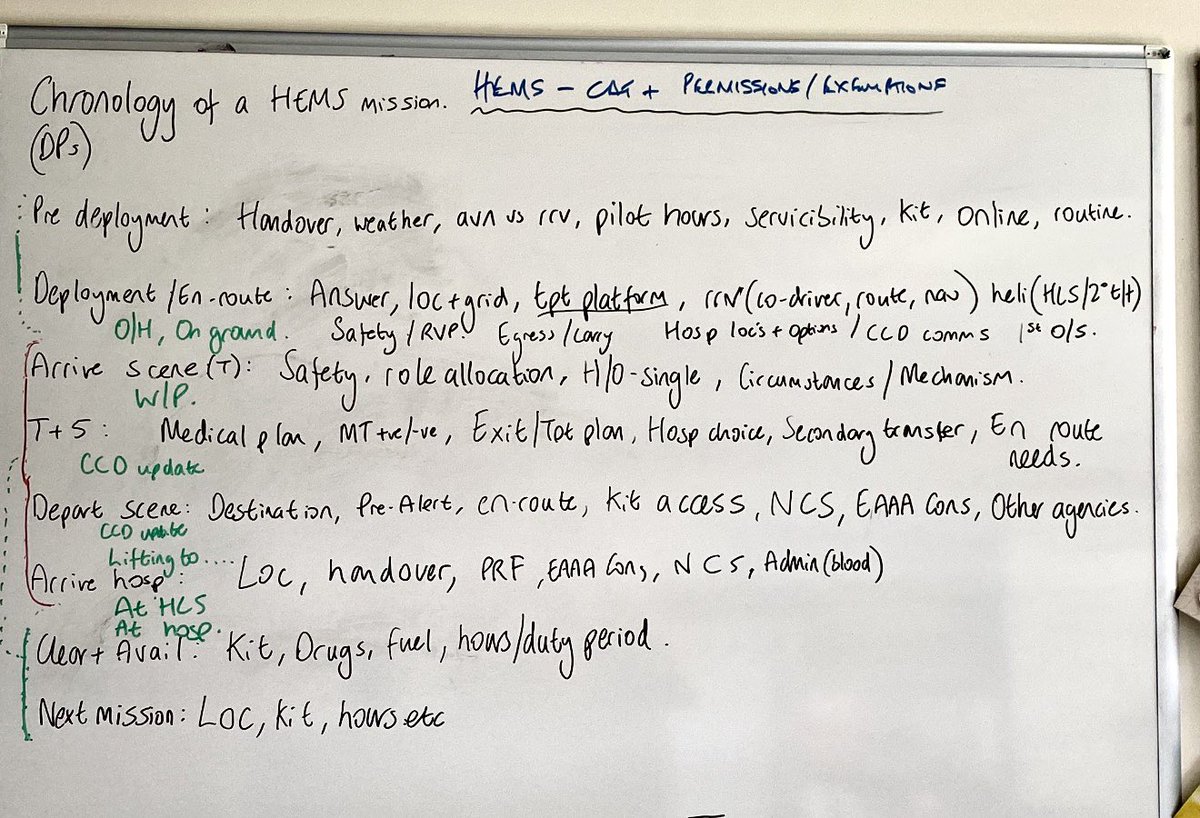 Chronology of a HEMS mission. HEMS - CAT + PERMISSIONS/EXEMPTIONS
(DPs)
Pre deployment: Handover, weather, avn vs rrv, pilot hours, servicibility, kit, online, routine.
Deployment/En-route: Answer, loc+grid, tpt platform, rrv (co-driver, route, nav) heli (HLS/2° tlt)
O/H, On ground. Safety/RVP. Egress/Carry Hosp locs + options/CCD comms 1st o/s.
Arrive scene (T): Safety, role allocation, H/O-single, Circumstances/Mechanism.
W/P.
T+5: Medical plan, MT+ve/-ve, Exit/Tpt plan, Hosp choice, Secondary transfer, En route
CCD update needs.
Depart scene: Destination, Pre-Alert, en-route, kit access, NCS, EAAA Cons, Other agencies.
CCD update
Lifting to....
Arrive hosp: Loc, handover, PRF, EAAA Cons, NCS, Admin (blood)
At HLS
At hosp.
Clear + Avail: Kit, Drugs, fuel, hours/duty period.
Next mission: Loc, kit, hours etc